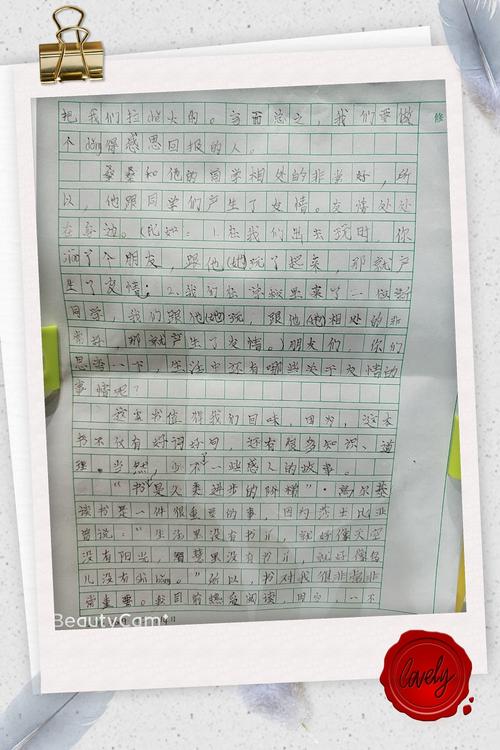 把我们拉出火的。言而总之，我们要做
不dǒng得感恩回报的人。
桑桑和他的同学相处的非常好，所
以，他跟同学们产生了友情。友情处处
在身边。（比如：1.在我们出去玩时，你
了个朋友，跟他（她）玩了起来，那就产
生了友情；2.我们在学校里来了一位新
同学，我们跟他（她）玩，跟他（她）相处的非
常好，那就产生了友情。）朋友们，你们
思考一下，生活中还有哪些关于友情的
事情呢？
这本书值得我们回味，因为，这本
书不仅有好词好句，还有很多知识、道
理。当然，少不了一些感人的故事。
“书是人类进步的阶梯”·高尔基
读书是一件很重要的事，因为莎士比亚
曾说：“生活里没有书，就好像天空
没有阳光，智慧里没有书，就好像鸟
儿没有翅bǎng。”所以，书对我们非常非
常重要。我目前 阅读，因为，一不
修
BeautyCam
lovely